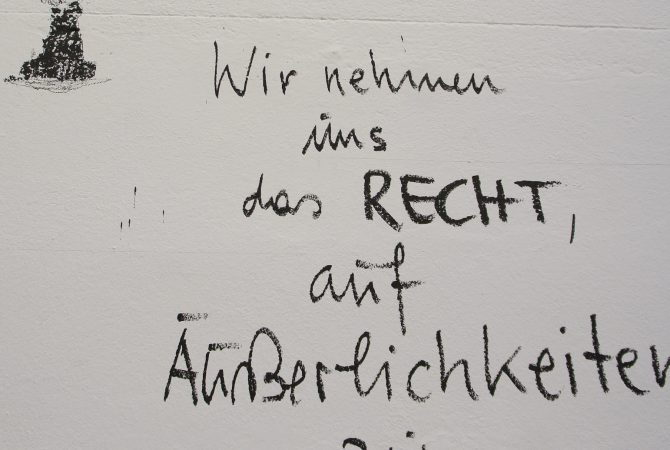 Wir nehmen
uns
das RECHT,
auf
Äußerlichkeiten